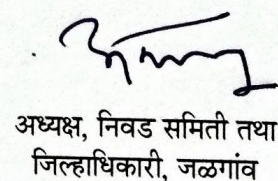 अध्यक्ष, निवड समिती तथा
जिल्हाधिकारी, जळगांव